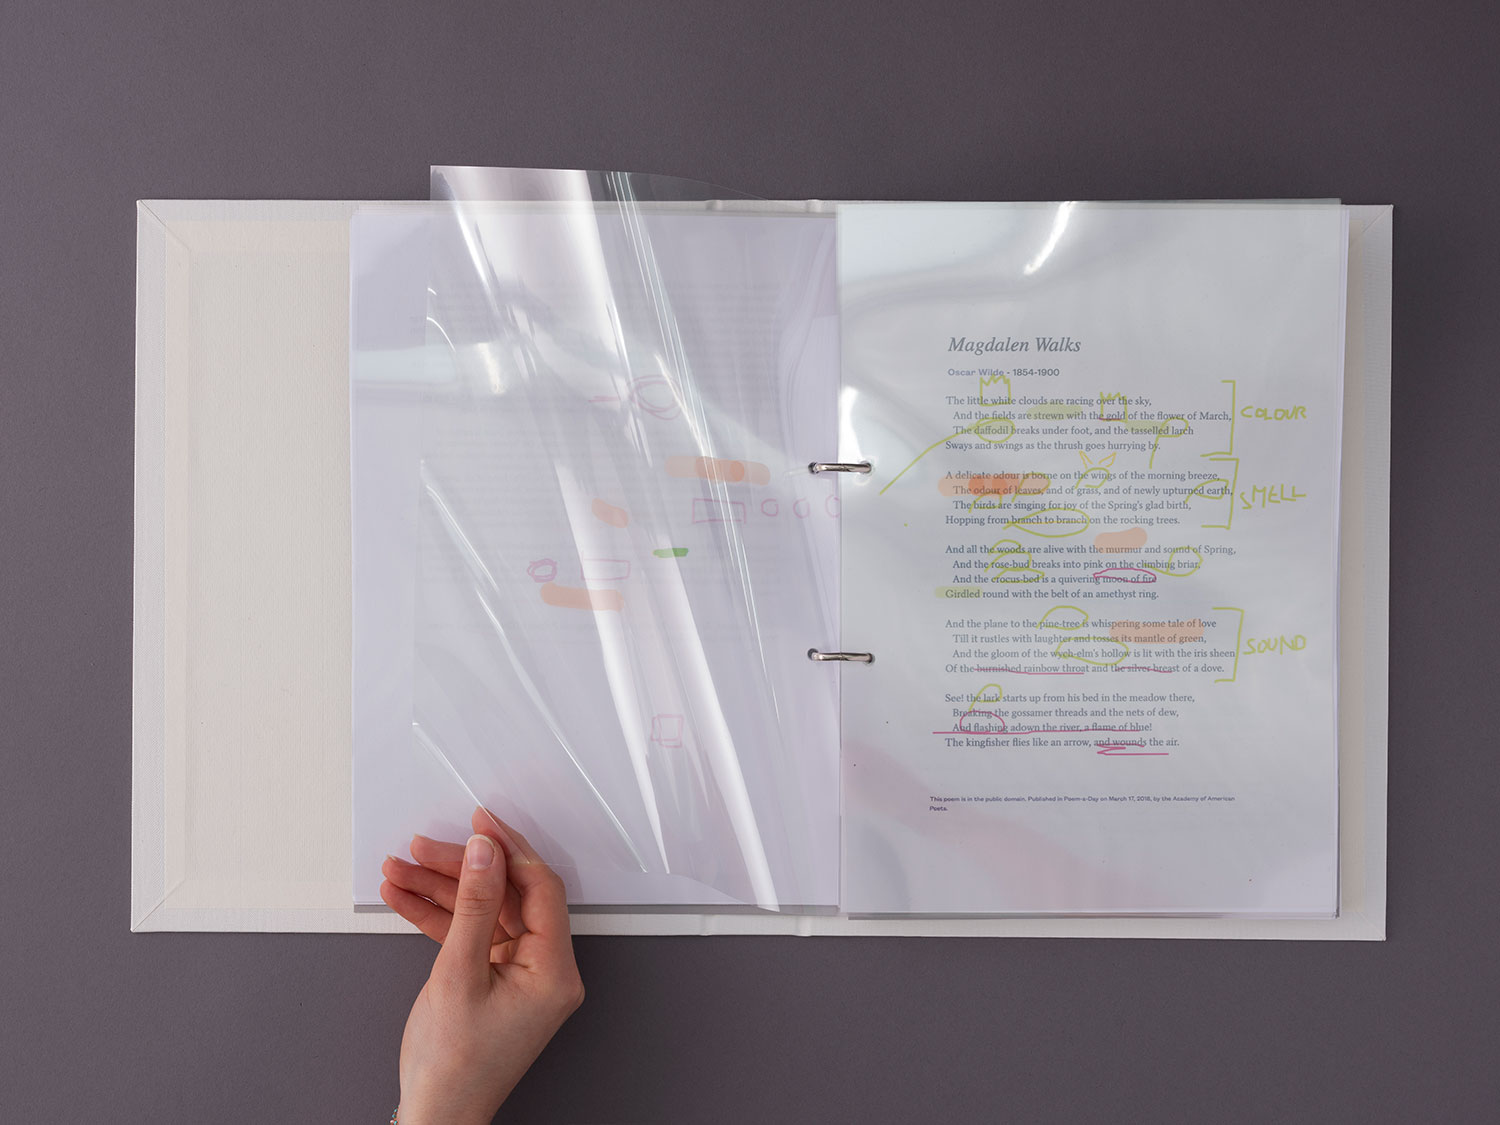 Magdalen Walks
Oscar Wilde - 1854-1900
The little white clouds are racing over the sky,
And the fields are strewn with the gold of the flower of March,
The daffodil breaks under foot, and the tasselled larch
Sways and swings as the thrush goes hurrying by.
COLOUR
A delicate odour is borne on the wings of the morning breeze,
The odour of leaves, and of grass, and of newly upturned earth,
The birds are singing for joy of the Spring's glad birth,
Hopping from branch to branch on the rocking trees.
SMELL
And all the woods are alive with the murmur and sound of Spring,
And the rose-bud breaks into pink on the climbing briar,
And the crocus-bed is a quivering moon of fire
Girdled round with the belt of an amethyst ring.
And the plane to the pine-tree is whispering some tale of love
Till it rustles with laughter and tosses its mantle of green,
And the gloom of the wych-elm's hollow is lit with the iris sheen
Of the burnished rainbow throat and the silver breast of a dove.
SOUND
See! the lark starts up from his bed in the meadow there,
Breaking the gossamer threads and the nets of dew,
And flashing adown the river, a flame of blue!
The kingfisher flies like an arrow, and wounds the air.
This poem is in the public domain. Published in Poem-a-Day on March 17, 2018, by the Academy of American
Poets.